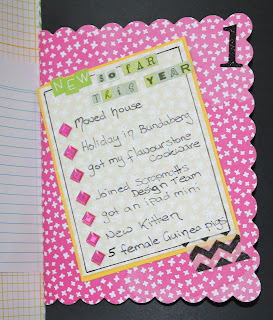 1
NEW so FAR
THIS YEAR
Moved house
Holiday in Bundaberg
got my flavourstone
Cookware
Joined Scrapmatts
Design Team
got an ipad mini
New Kitten
5 female Guinea pigs